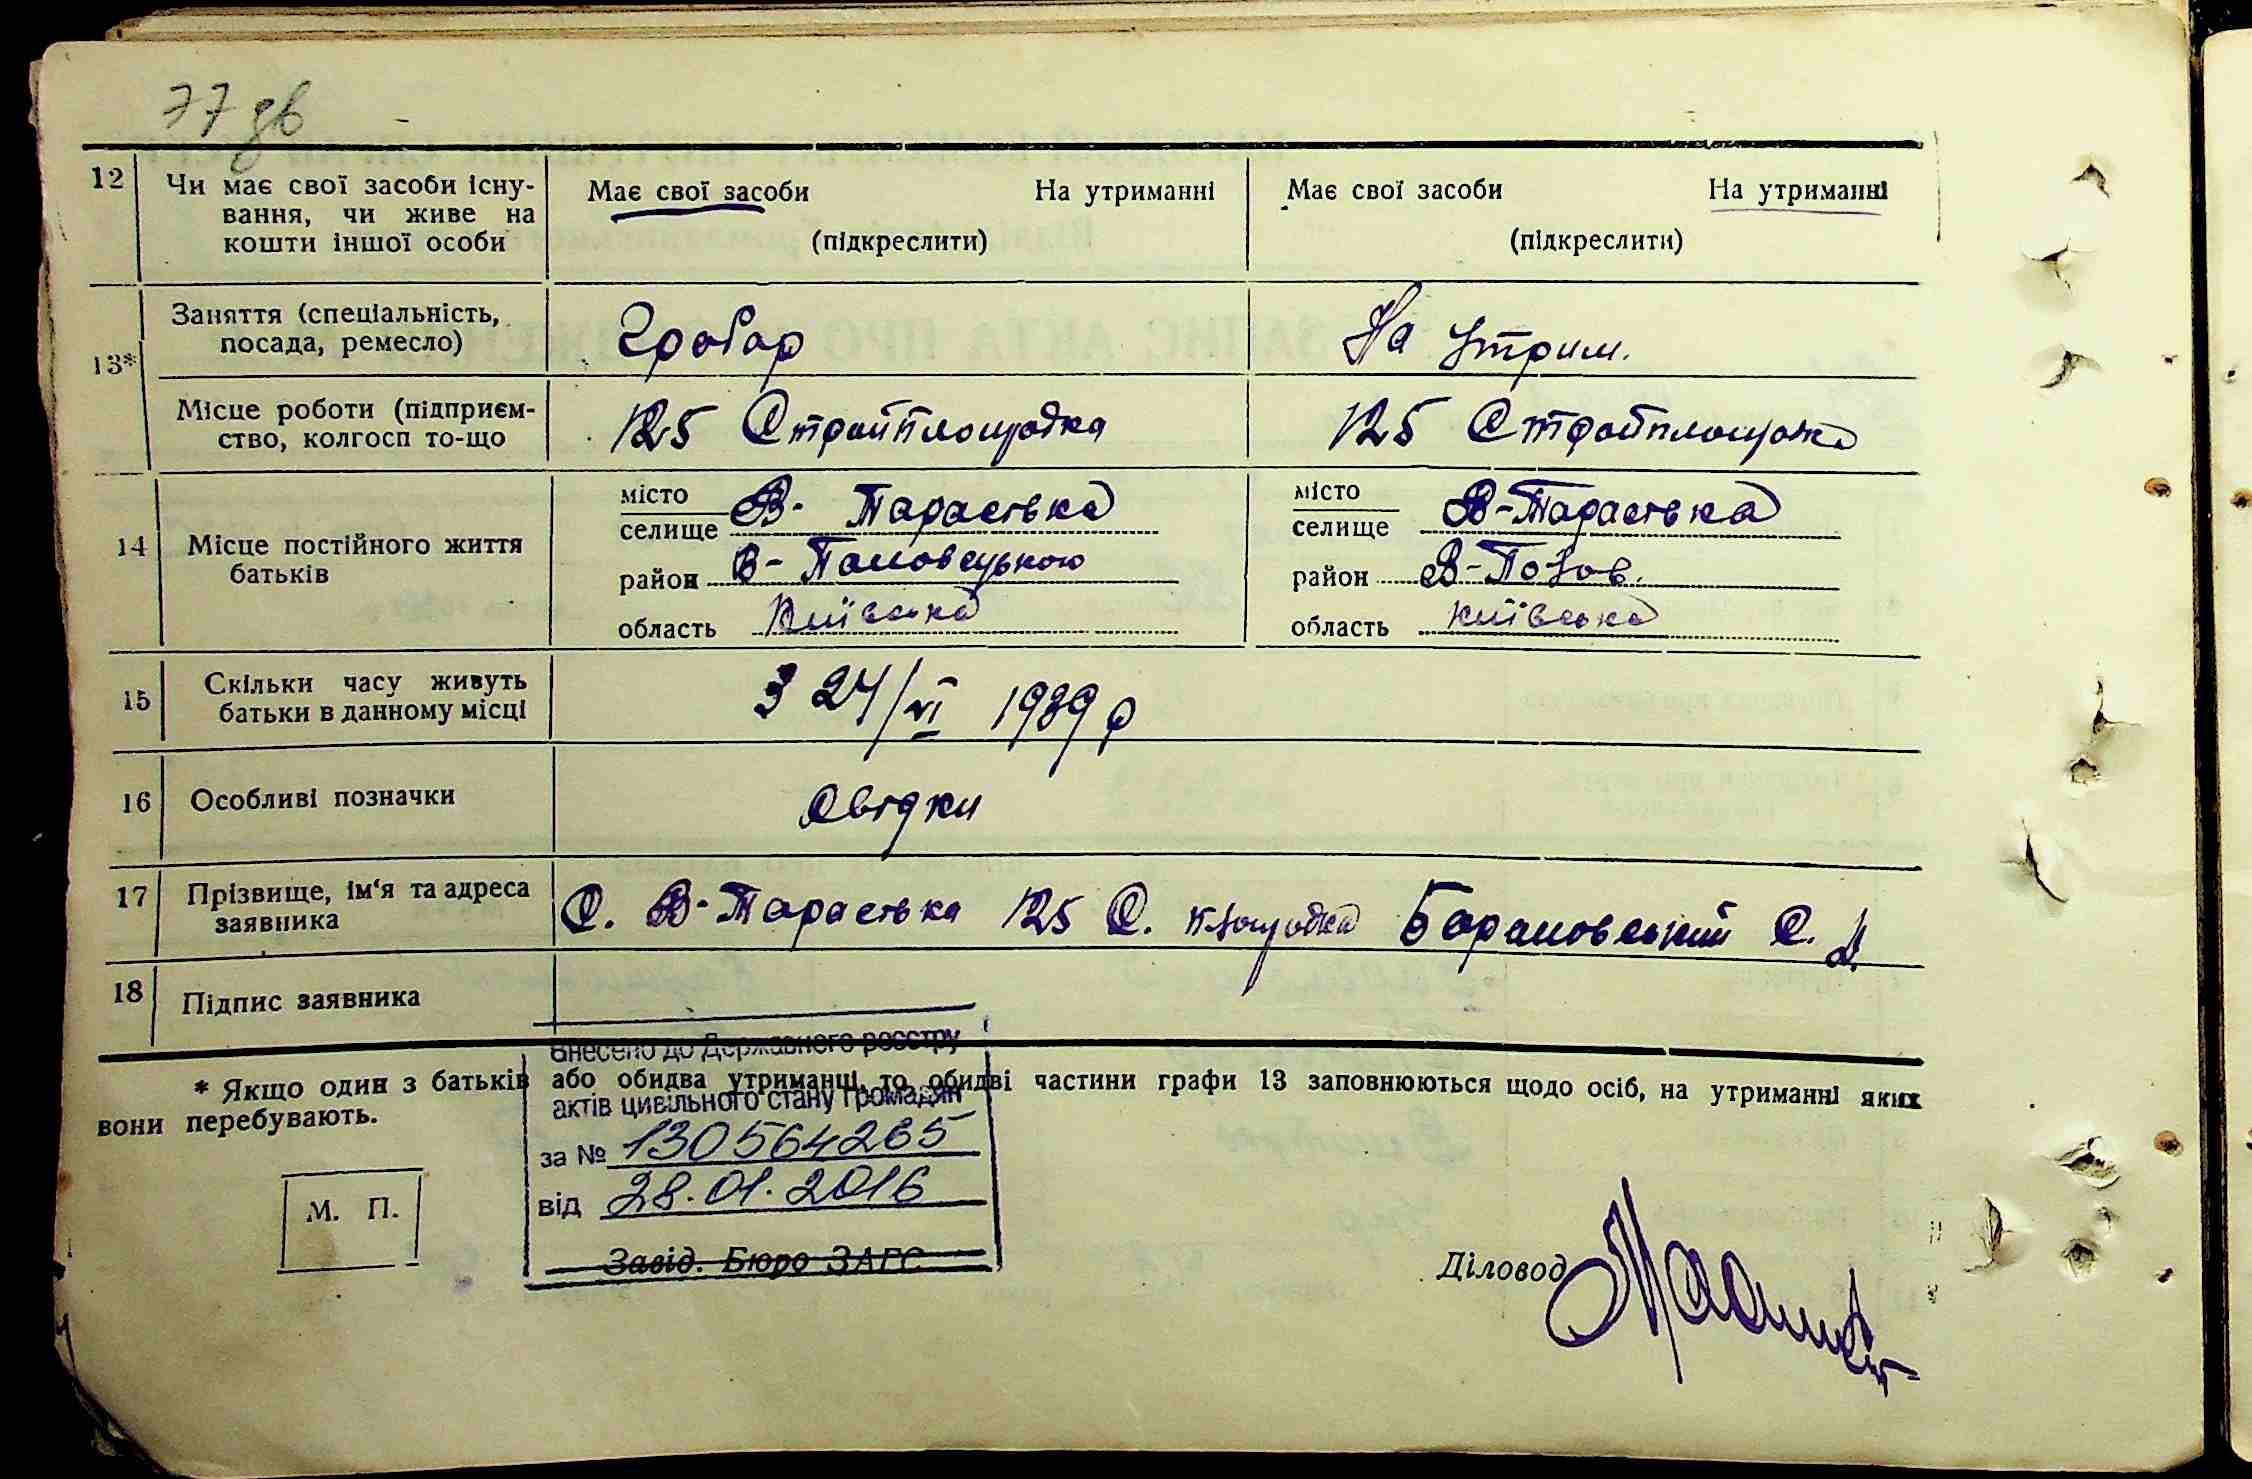 77 зв
12 Чи має свої засоби існу- Має свої засоби На утриманні Має свої засоби На утриманні
вання, чи живе на
кошти іншої особи (підкреслити) (підкреслити)
13* Заняття (спеціальність, посада, ремесло) На утрим.
Місце роботи (підприєм- 125 Стройплощадка 125 Стройплощадка
ство, колгосп то-що
14 Місце постійного життя батьків
місто
селище В-Тарастька
район
область Київська
місто
селище В-Тарастька
район В-Полов.
область Київська
15 Скільки часу живуть З 24/VI 1939 р
батьки в данному місці
16 Особливі позначки Свідки
17 Прізвище, ім‘я та адреса С. В-Тарастька 125 С. площадка Барановський С.
заявника
18 Підпис заявника
* Якщо один з батьків або обидва утриманці, то обидві частини графи 13 заповнюються щодо осіб, на утриманні яких
вони перебувають.
Внесено до Державного реєстру
актів цивільного стану громадян
за № 130564265
від 28.01.2016
Завід. Бюро ЗАГС
М. П.
Діловод